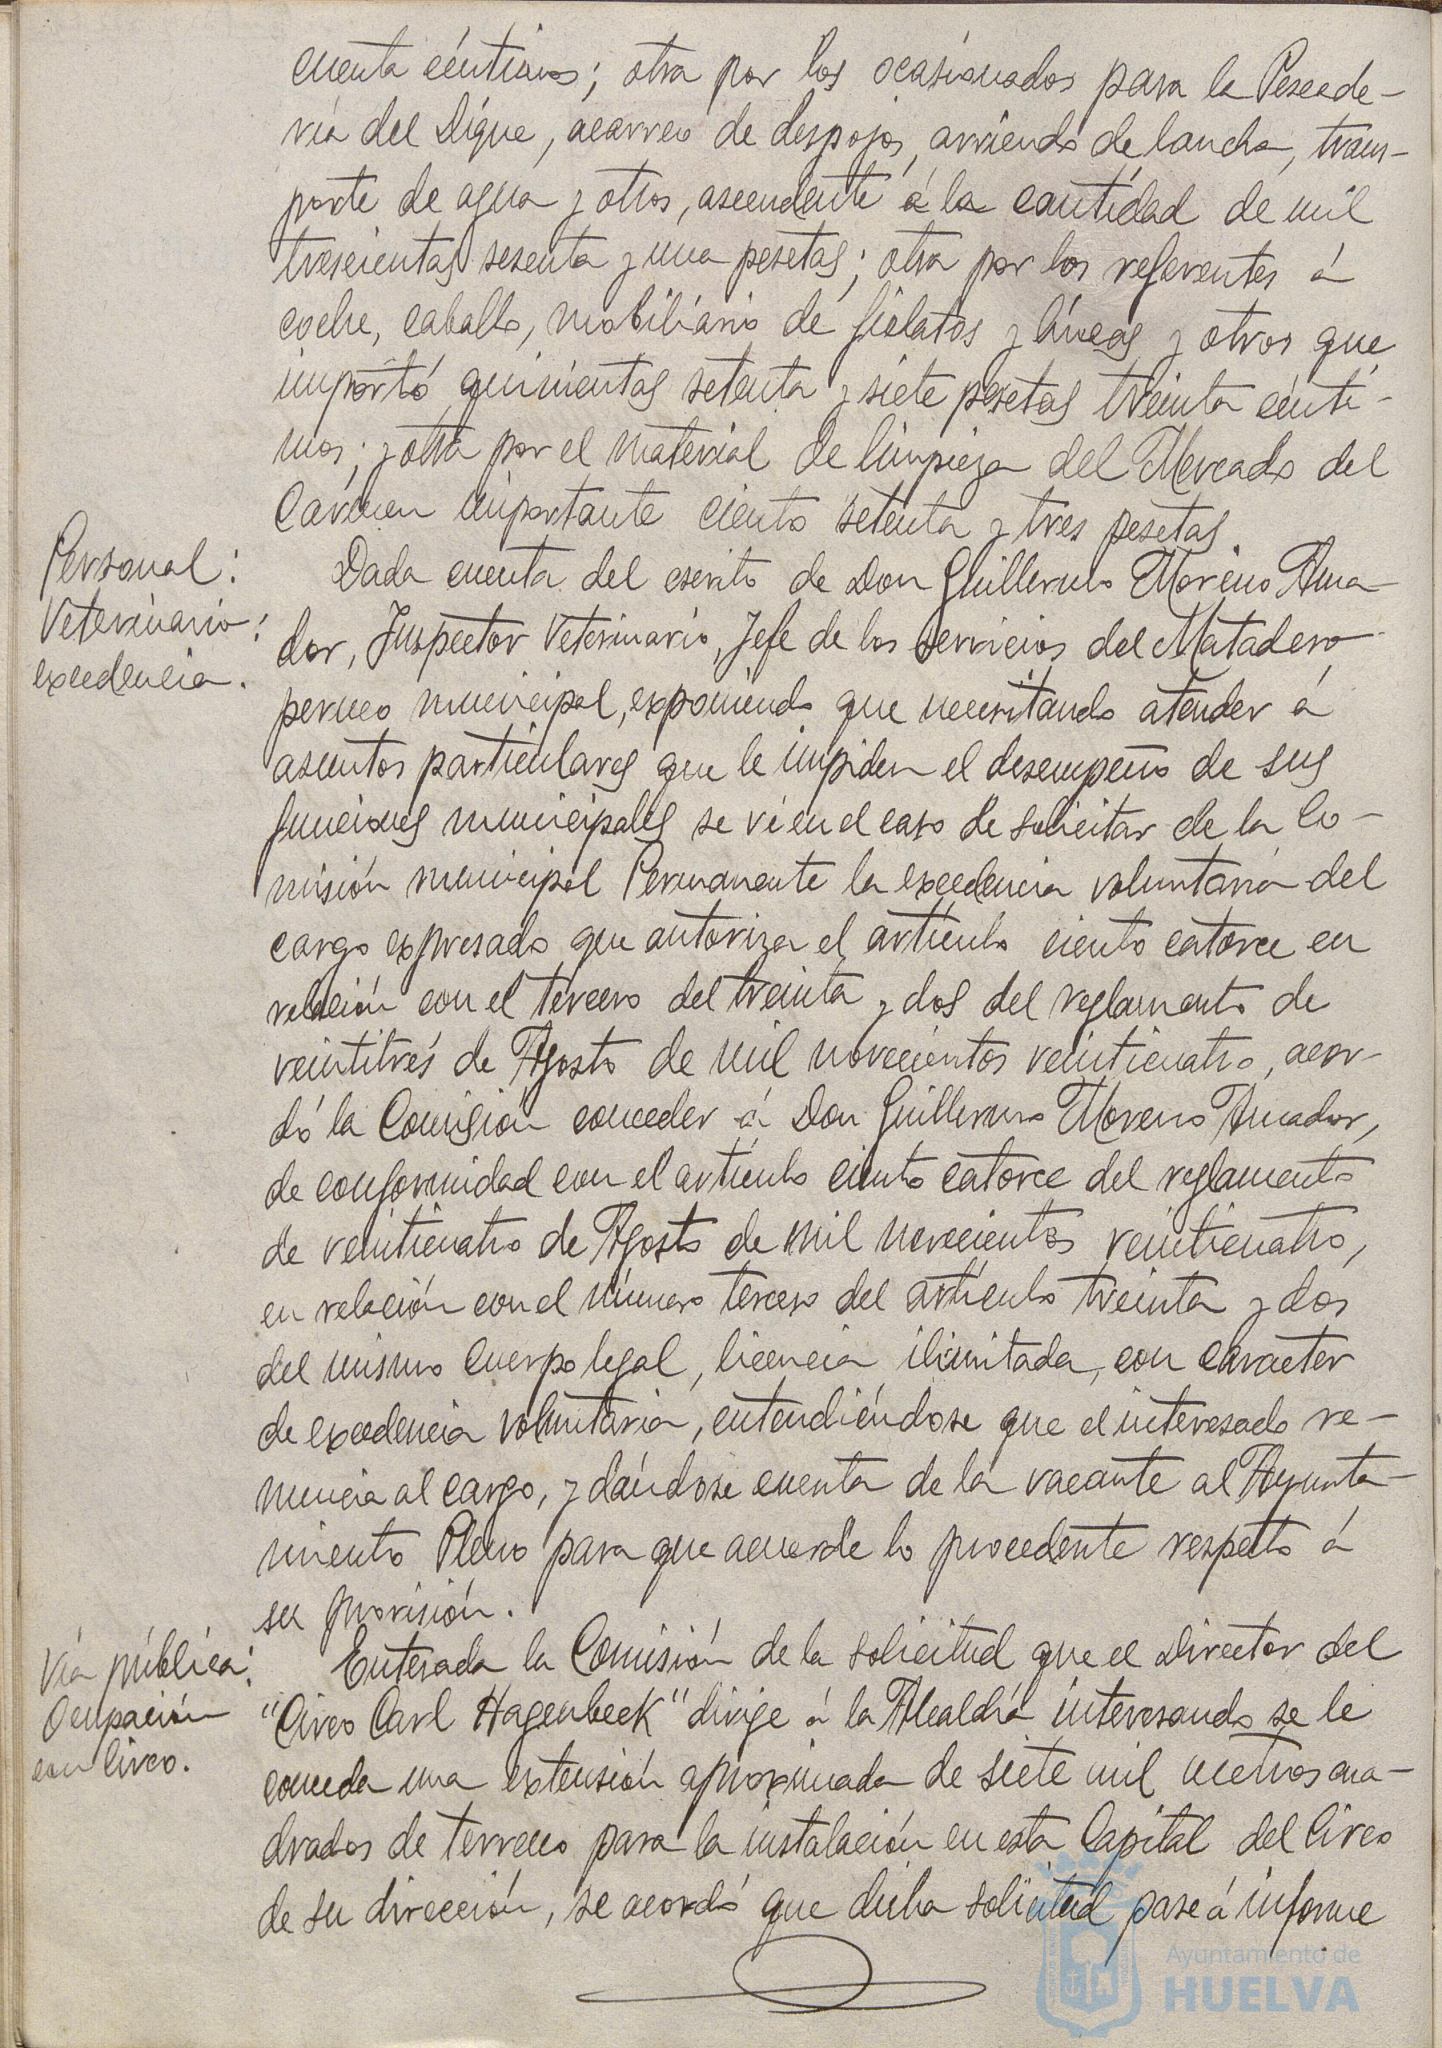 cuenta céntimos; otra por los ocasionados para la Pescade-
ría del Dique, acarreo de despojos, arriendo de lancha, trans-
porte de agua y otros, ascendente á la cantidad de mil
trescientas sesenta y una pesetas; otra por los referentes á
coche, caballo, mobiliario de fielatos y líneas y otros que
importó quinientas setenta y siete pesetas treinta cénti-
mos; y otra por el material de limpieza del Mercado del
Cármen importante ciento setenta y tres pesetas.
Personal:
Veterinario:
excedencia.
Dada cuenta del escrito de Don Guillermo Moreno Ama-
dor, Inspector Veterinario, Jefe de los servicios del Matadero
perneo municipal, exponiendo que necesitando atender á
asuntos particulares que le impiden el desempeño de sus
funciones municipales se vé en el caso de solicitar de la Co-
misión municipal Permanente la excedencia voluntaria del
cargo expresado que autoriza el artículo ciento catorce en
relación con el tercero del treinta y dos del reglamento de
veintitrés de Agosto de mil novecientos veinticuatro, acor-
dó la Comisión conceder á Don Guillermo Moreno Amador,
de conformidad con el artículo ciento catorce del reglamento
de veinticuatro de Agosto de mil novecientos veinticuatro,
en relación con el número tercero del artículo treinta y dos
del mismo cuerpo legal, licencia ilimitada, con caracter
de excedencia voluntaria, entendiéndose que el interesado re-
nuncia al cargo, y dándose cuenta de la vacante al Ayunta-
miento Pleno para que acuerde lo procedente respecto á
su provisión.
Vía pública:
Ocupación
con Circo.
Enterada la Comisión de la solicitud que el Director del
"Circo Carl Hagenbeck" dirige á la Alcaldía interesando se le
conceda una extensión aproximada de siete mil metros cua-
drados de terreno para la instalación en esta Capital del Circo
de su dirección, se acordó que dicha solicitud pase á informe
Ayuntamiento de
HUELVA